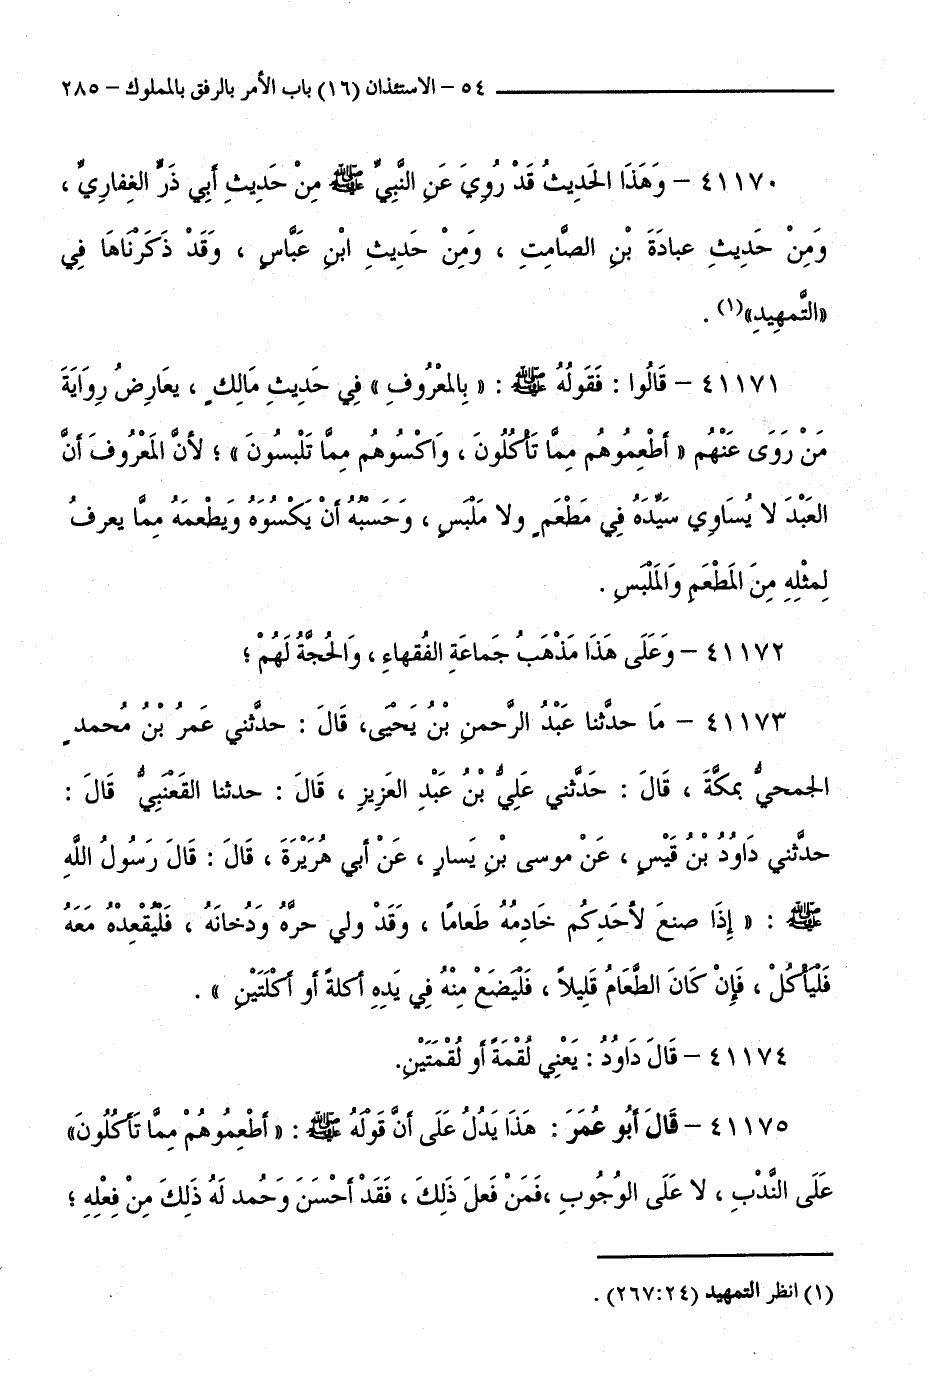 ٥٤ – الاستئذان (١٦) باب الأمر بالرفق بالمملوك – ٢٨٥
٤١١٧٠ – وَهَذَا الحَدِيثُ قَدْ رُوِيَ عَنِ النَّبِيِّ ﷺ مِنْ حَدِيثِ أَبِي ذَرٍّ الغِفارِيِّ ،
وَمِنْ حَدِيثِ عبادَةَ بْنِ الصَّامِتِ ، وَمِنْ حَدِيثِ ابْنِ عَبَّاسٍ ، وَقَدْ ذَكَرْنَاهَا فِي
«التَّمهِيدِ»(١) .
٤١١٧١ – قَالُوا : فَقَولُهُ ﷺ : « بِالمعْرُوفِ » فِي حَدِيثِ مَالِكٍ ، يعَارِضُ رِوَايَةَ
مَنْ رَوَى عَنْهُم « أَطْعِمُوهُم مِمَّا تَأْكُلُونَ ، وَاكْسُوهُم مِمَّا تَلْبسُونَ » ؛ لأَنَّ المَعْرُوفَ أنَّ
العَبْدَ لا يُسَاوِي سَيِّدَهُ فِي مَطْعَمٍ ولا مَلْبَسٍ ، وَحَسْبُهُ أَنْ يَكْسُوَهُ وَيَطْعمَهُ مِمَّا يعرفُ
لِمثْلِهِ مِنَ المَطْعَمِ وَالمَلْبَسِ .
٤١١٧٢ – وَعَلَى هَذَا مَذْهَبُ جَمَاعَةِ الفُقهاءِ ، وَالحُجَّةُ لَهُمْ ؛
٤١١٧٣ – مَا حدَّثنا عَبْدُ الرَّحمنِ بْنُ يَحْيَى، قَالَ : حدَّثني عَمرُ بْنُ مُحمدٍ
الجمحيُّ بمكَّةَ ، قَالَ : حَدَّثني عَلِيُّ بْنُ عَبْدِ العَزِيزِ ، قَالَ : حدثنا القَعْنَبِيُّ قَالَ :
حدَّثني دَاوُدُ بْنُ قَيْسٍ ، عَنْ موسى بْنِ يَسارٍ ، عَنْ أبي هُرَيْرَةَ ، قَالَ : قَالَ رَسُولُ اللَّهِ
ﷺ : « إِذَا صنعَ لأَحَدِكُم خَادِمُهُ طَعامًا ، وَقَدْ ولي حرَّهُ وَدُخانَهُ ، فَلْيُقْعِدْهُ مَعَهُ
فَلْيَأْكُلْ ، فَإِنْ كَانَ الطَّعَامُ قَلِيلاً ، فَلْيَضَعْ مِنْهُ فِي يَدِهِ أكلةً أو أكْلَتَيْنِ » .
٤١١٧٤ – قَالَ دَاوُدُ : يَعْنِي لُقْمَةً أو لُقْمَتَيْنِ.
٤١١٧٥ – قَالَ أَبُو عُمَرَ : هَذَا يَدُلُ عَلَى أَنَّ قَوْلَهُ ﷺ : « أَطْعِمُوهُمْ مِمَّا تَأكُلُونَ»
عَلَى النَّدْبِ ، لا عَلَى الوُجُوبِ ،فَمَنْ فَعلَ ذَلِكَ ، فَقَدْ أَحْسَنَ وَحُمد لَهُ ذَلِكَ مِنْ فِعْلِهِ ؛
(١) انظر التمهيد (٢٤:٢٦٧) .